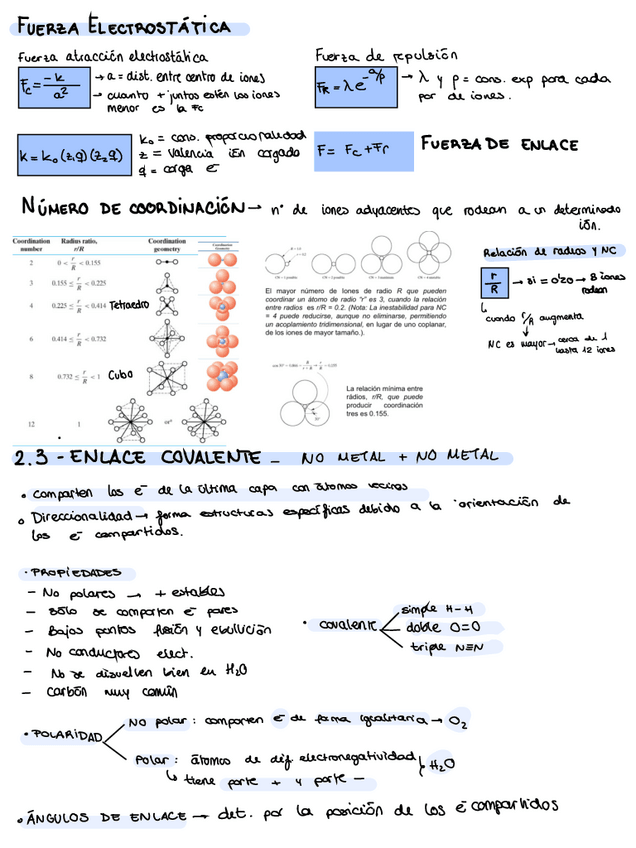 FUERZA ELECTROSTÁTICA
Fuerza atracción electrostática
Fc = -k / a²
→ a = dist. entre centro de iones
→ cuanto + juntos estén los iones
menor es la Fc
Fuerza de repulsión
FR = λe^-a/ρ
→ λ y ρ = cons. exp para cada
par de iones.
k = k₀ (z₁q) (z₂q)
k₀ = cons. proporcionalidad
z = valencia iEn cargado
q = carga e⁻
F = Fc + Fr
FUERZA DE ENLACE
NÚMERO DE COORDINACIÓN → nº de iones adyacentes que rodean a un determinado
ión.
Coordination number
Radius ratio, r/R
Coordination geometry
2 0 < r/R < 0.155
3 0.155 ≤ r/R < 0.225
4 0.225 ≤ r/R < 0.414 Tetraedro
6 0.414 ≤ r/R < 0.732
8 0.732 ≤ r/R < 1 Cubo
12 1 or
El mayor número de Iones de radio R que pueden
coordinar un átomo de radio "r" es 3, cuando la relación
entre radios es r/R = 0.2. (Nota: La inestabilidad para NC
= 4 puede reducirse, aunque no eliminarse, permitiendo
un acoplamiento tridimensional, en lugar de uno coplanar,
de los iones de mayor tamaño.).
La relación mínima entre
rádios, r/R, que puede
producir coordinación
tres es 0.155.
Relación de radios y NC
r/R → si = 0'20 → 8 iones
rodean
cuando r/R augmenta
NC es mayor → cerca de 1
hasta 12 iones
2.3 - ENLACE COVALENTE - NO METAL + NO METAL
• comparten los e⁻ de la última capa con átomos vecinos
• Direccionalidad → forma estructuras específicas debido a la orientación de
los e⁻ compartidos.
· PROPIEDADES
- No polares → + estables
- sólo se comparten e⁻ pares
- Bajos puntos fusión y ebullición
- No conductores elect.
- No se disuelven bien en H₂O
- Carbón muy común
• covalente
simple H-H
doble O=O
triple N≡N
• POLARIDAD
NO polar : comparten e⁻ de forma igualitaria → O₂
Polar : átomos de dif. electronegatividad } H₂O
↳ tiene parte + y parte -
• ÁNGULOS DE ENLACE → det. por la posición de los e⁻ compartidos